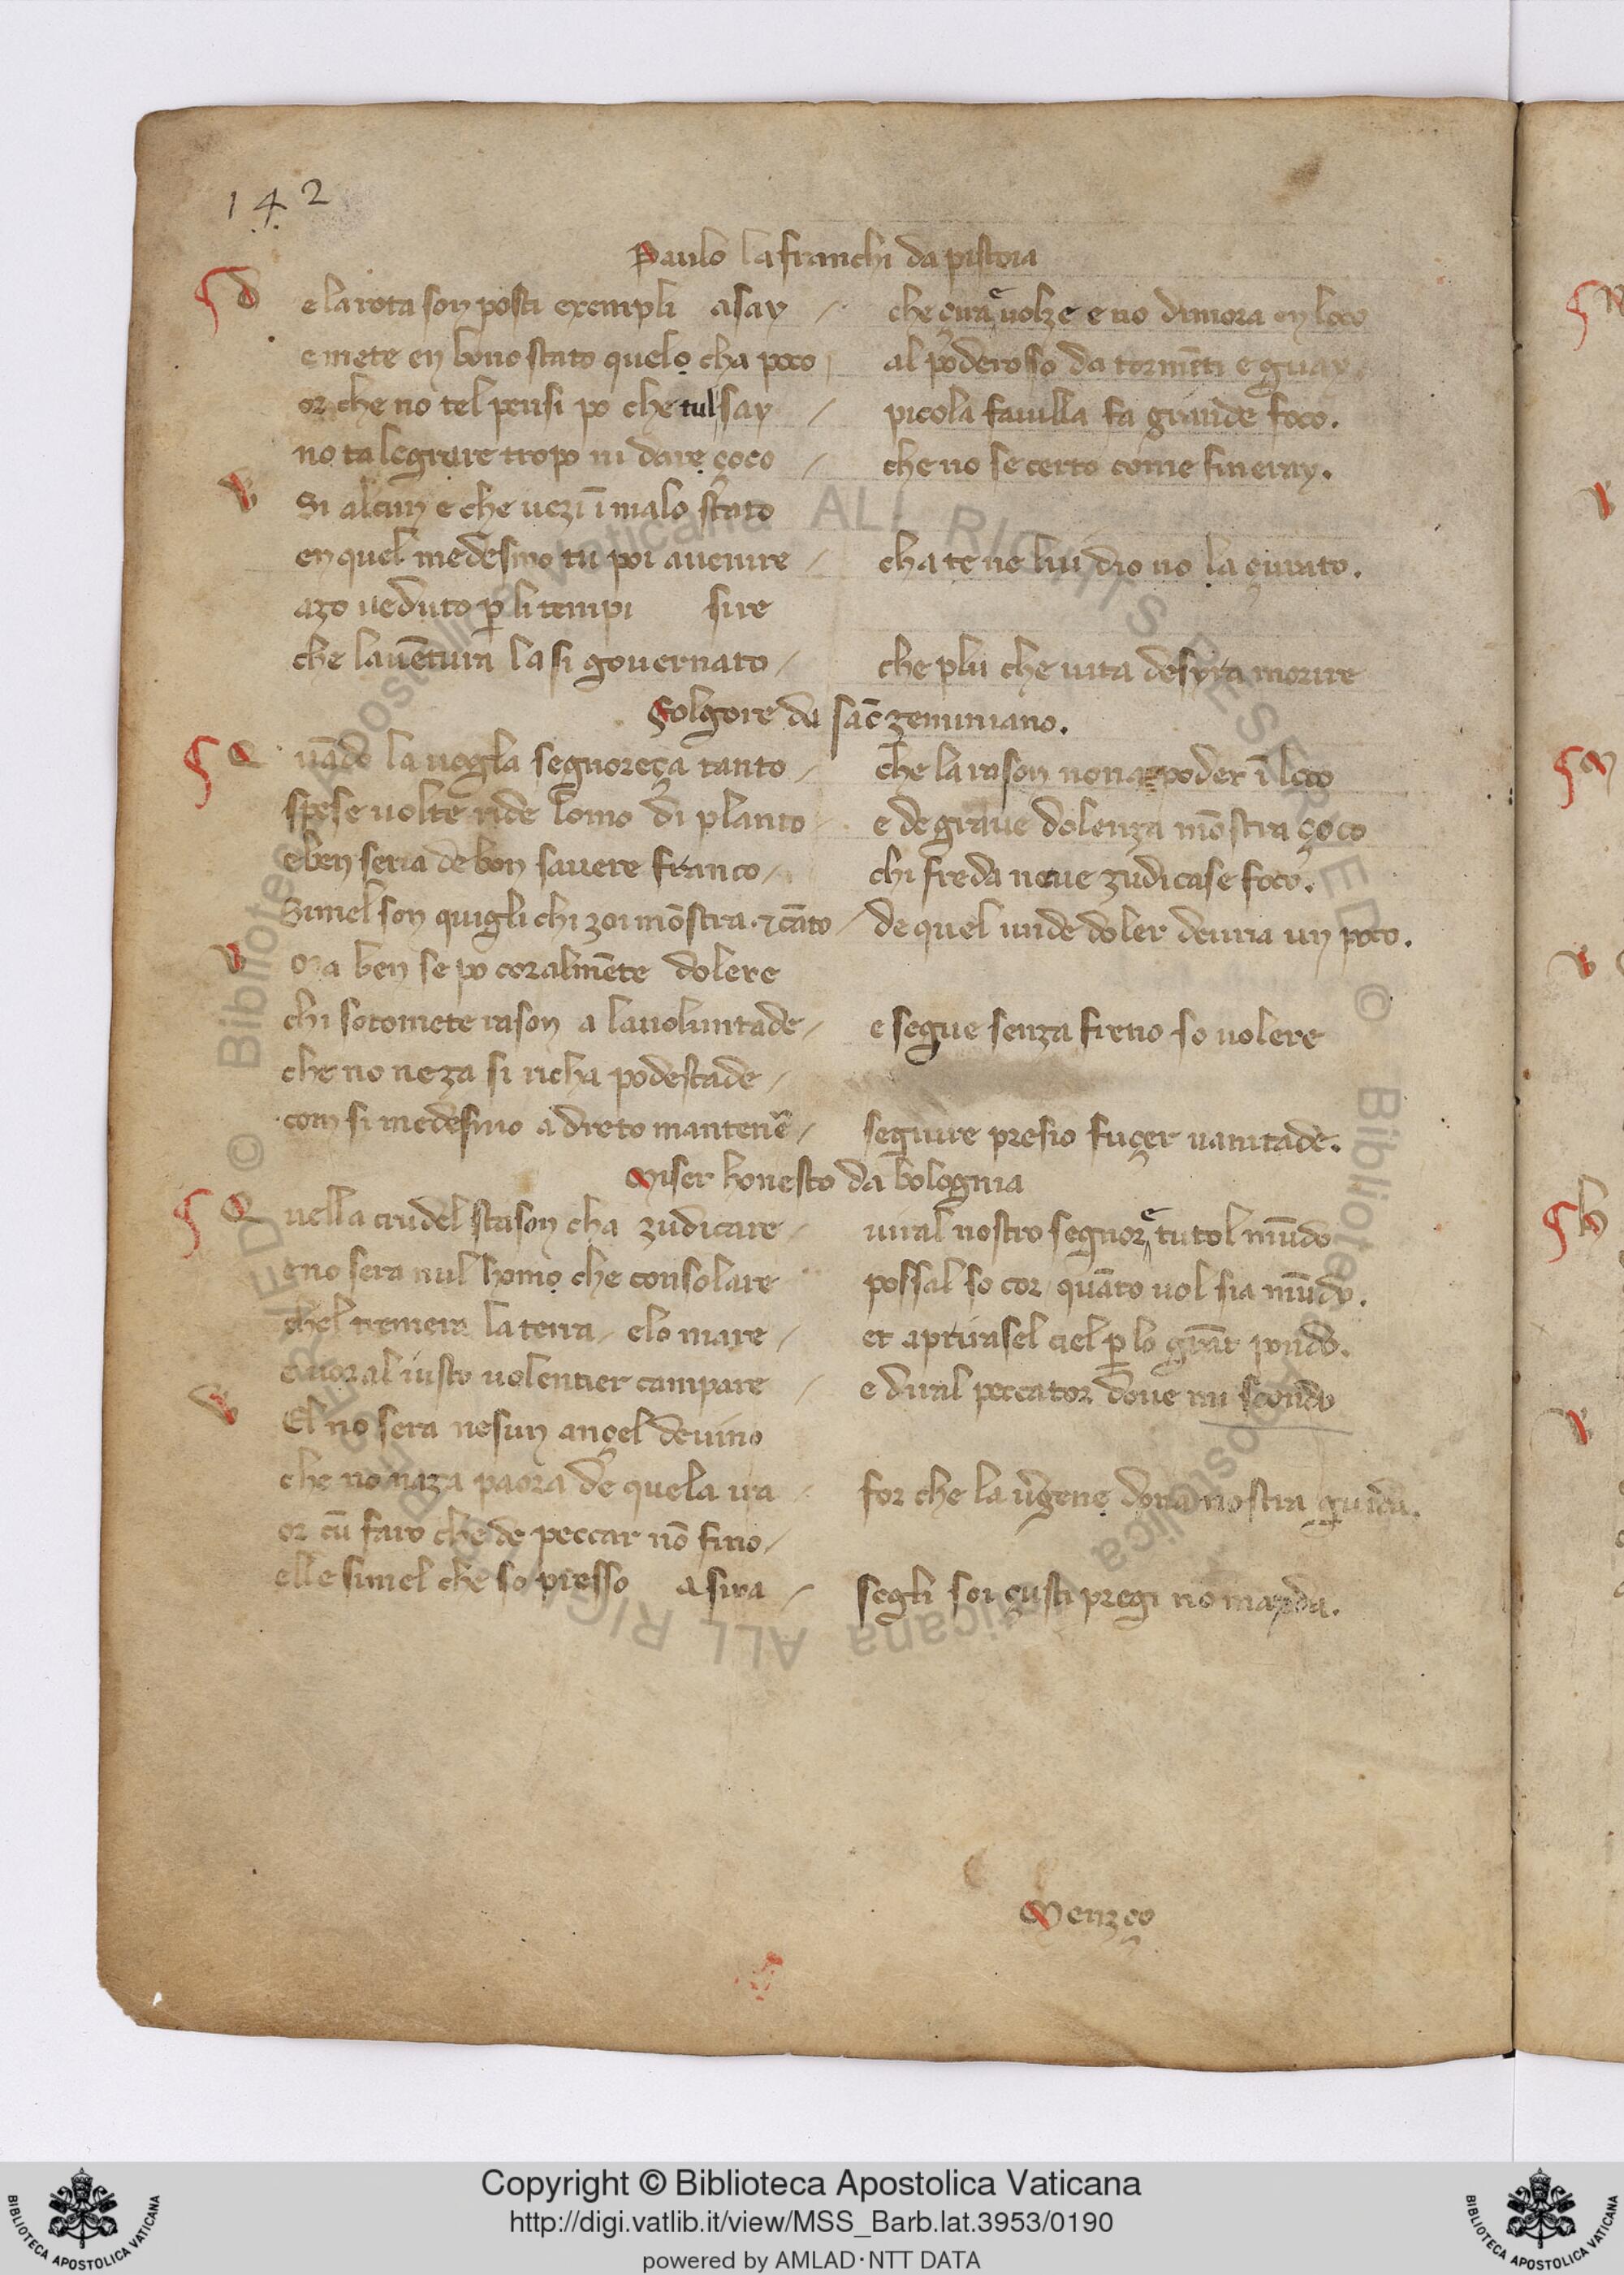 142
Paulo lafranchi da pistoia
de la rota son posti exempli asay / che çira e volze e no dimora en loco
e mete en bono stato quelo cha poco / al poderoso da tormēti e guay
or che no tel pensi po che tul say / picola fauilla fa grande foco.
no talegrare tropo ni dare çoco / che no se certo come fineray.
Si alcun e che uezi ī malo stato
en quel medesmo tu poi auenire / cha te ne lui dio no la çurato.
azo ueduto p̱ li tempi sire
che lauētura la si gouernato / che plu che uita desyra morire
Folgore da sāc zeminiano.
Quādo la uogla segnoreça tanto / che la rason non a poder ī loco
spese uolte ride lomo di planto / e de graue dolenza mōstra çoco
e ben seria de bon sauere franco / chi freda neue zudicase foco.
Simel son quigli chi zoi mōstra ⁊ cāto / de quel unde doler deuria un poco.
Ora ben se po coralmēte dolere
chi sotomete rason a la uoluntade / e segue senza freno so uolere
che no neza si richa podestade /
com si medesmo a dreto mantenē / seguire presio fuçer uanitade.
Miser honesto da bolognia
Quella crudel stason cha zudicare / uiral nostro segnor e tutol mūdo
e no sera nul homo che consolare / possal so cor quāto uol sia mūdo.
chel tremera la terra / elo mare / et aprirasel ciel p̱ lo grāt pondo.
e uoral iusto uolentier campare / e diral peccator doue mi scondo
El no sera nesun angel deuino
che no naza paora de quela ira / for che la ṽgene dona nostra guida.
or cū faro che de peccar nō fino /
elle simel che so presso a sira / segli soi çusti pregi no mayda.
Menzço
Copyright © Biblioteca Apostolica Vaticana
http://digi.vatlib.it/view/MSS_Barb.lat.3953/0190
powered by AMLAD·NTT DATA
BIBLIOTECA APOSTOLICA VATICANA
BIBLIOTECA APOSTOLICA VATICANA